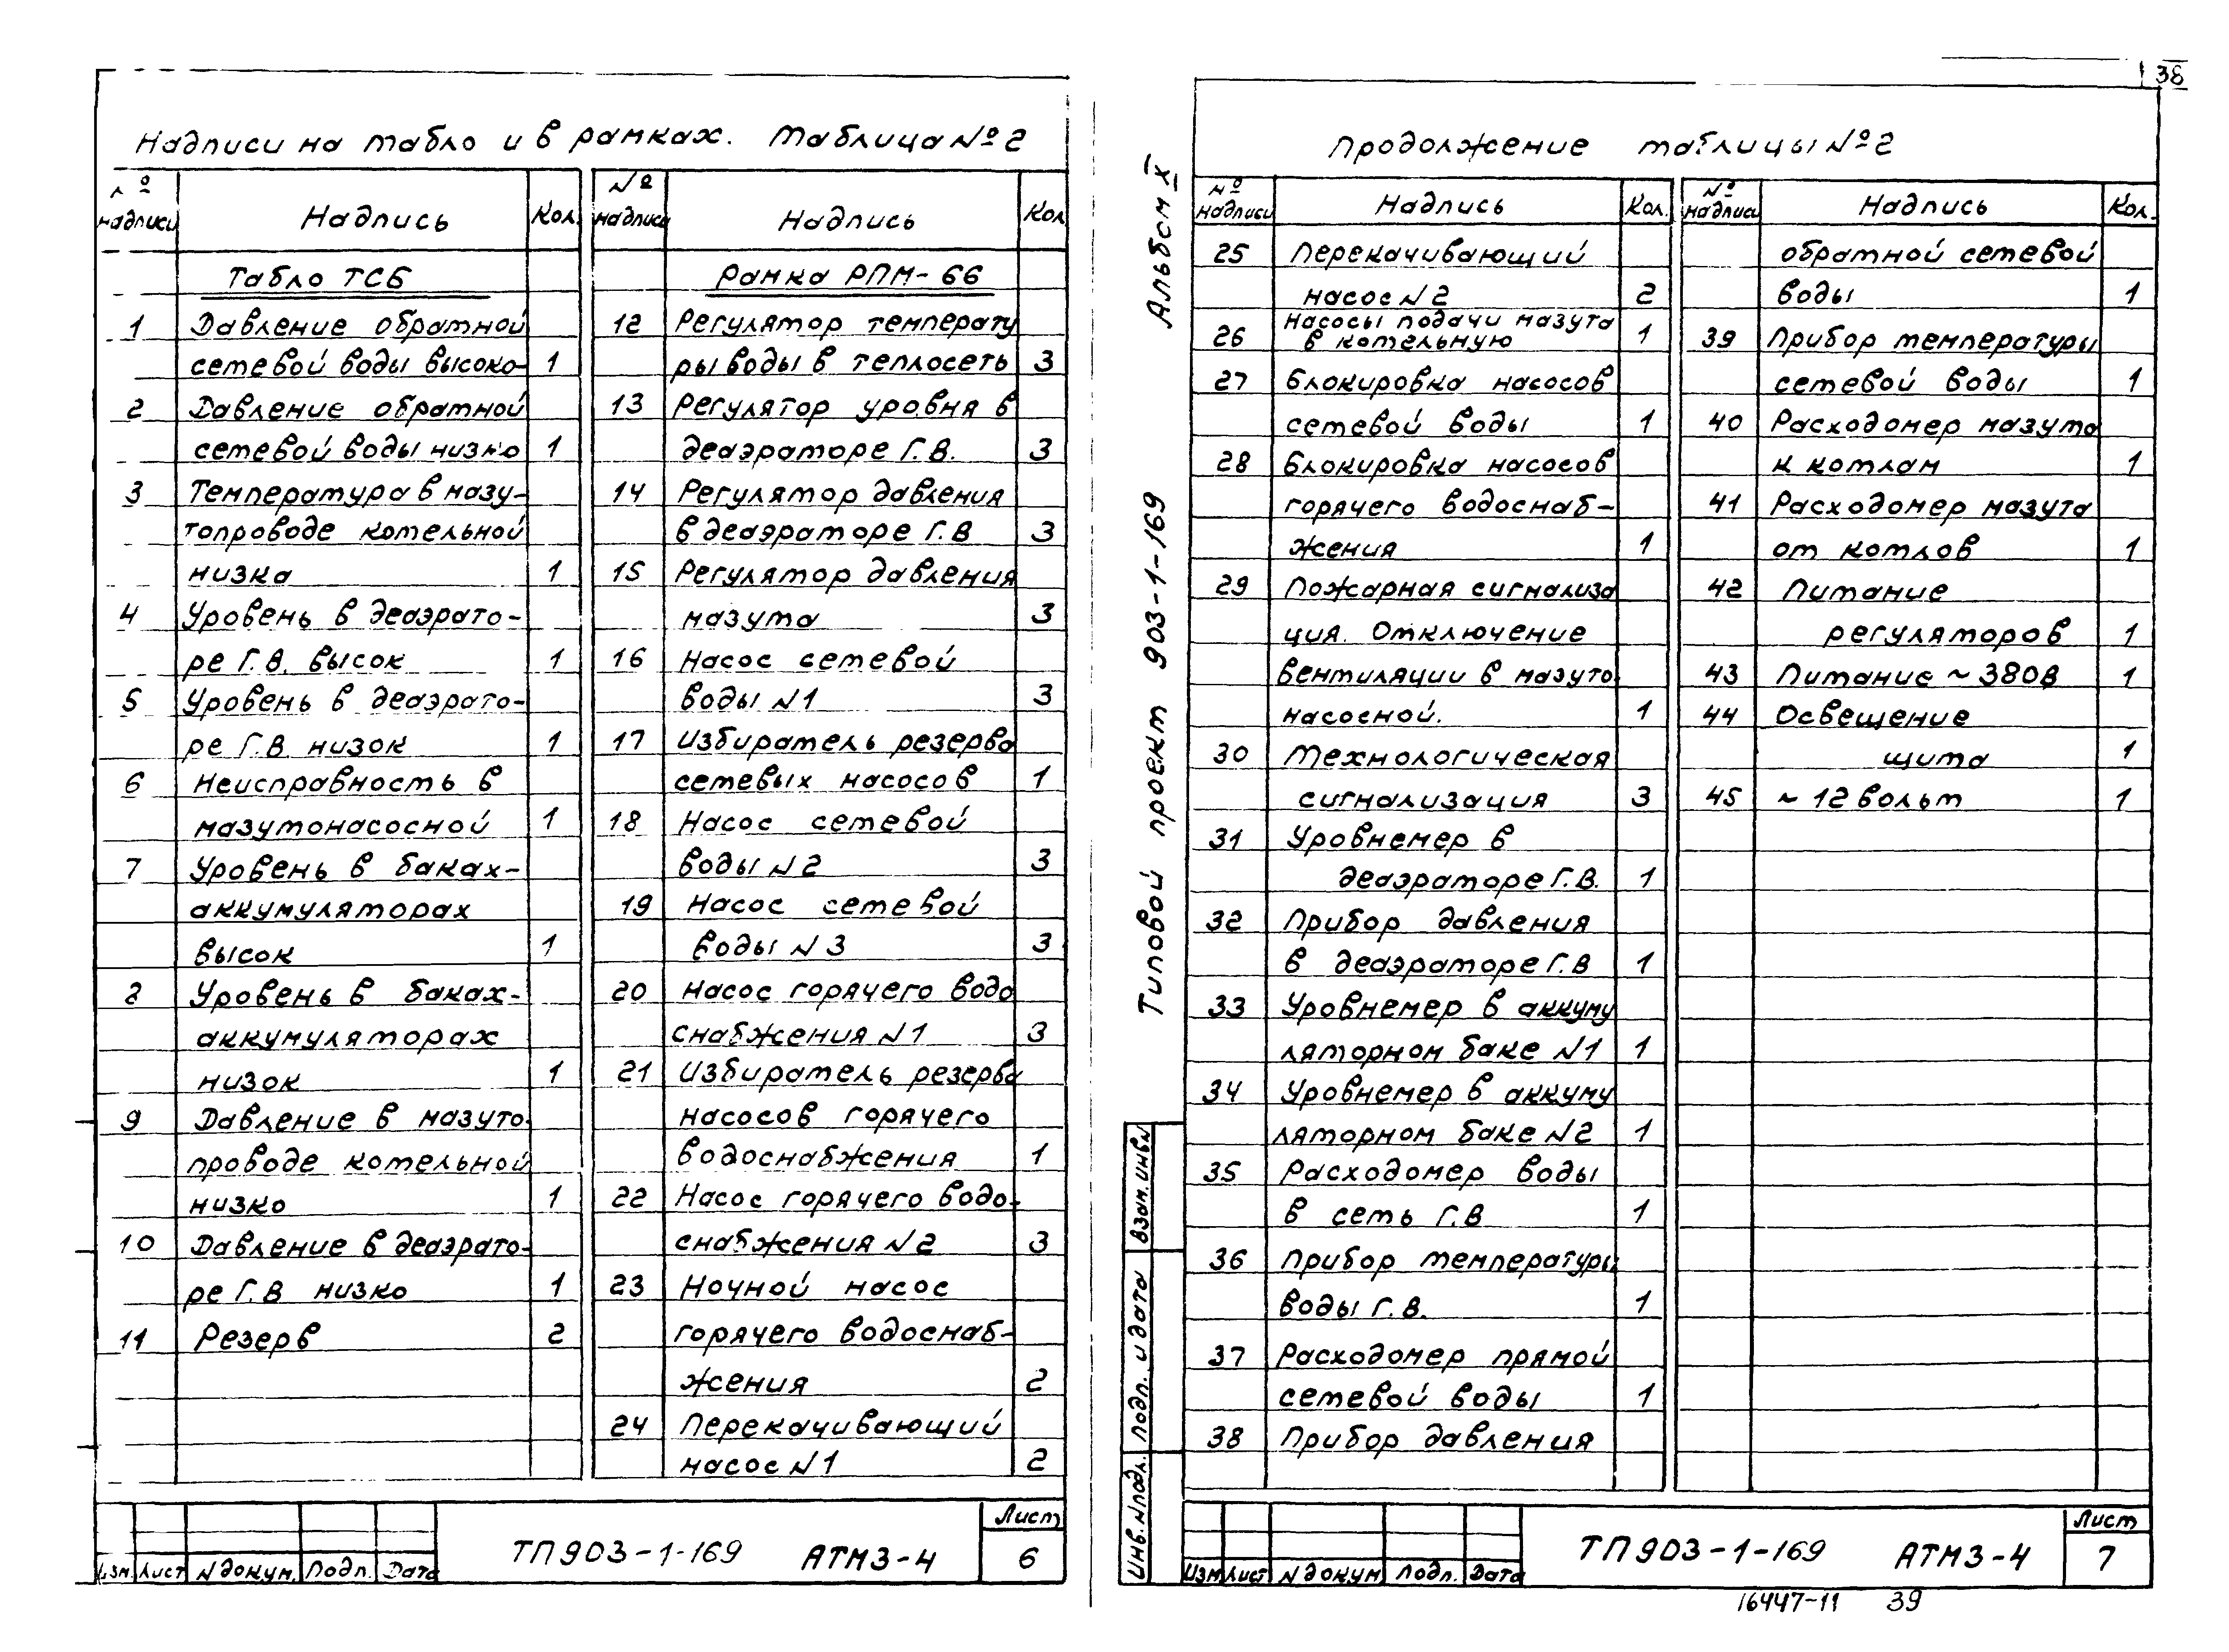 38
Надписи на табло и в рамках. Таблица №2
№ надписи
Надпись
Кол.
№ надписи
Надпись
Кол.
Табло ТСБ
1 Давление обратной
сетевой воды высоко- 1
2 Давление обратной
сетевой воды низко 1
3 Температура в мазу-
топроводе котельной
низка 1
4 Уровень в деаэрато-
ре Г.В. высок 1
5 Уровень в деаэрато-
ре Г.В. низок 1
6 Неисправность в
мазутонасосной 1
7 Уровень в баках-
аккумуляторах
высок 1
8 Уровень в баках-
аккумуляторах
низок 1
9 Давление в мазуто-
проводе котельной
низко 1
10 Давление в деаэрато-
ре Г.В низко 1
11 Резерв 2
Рамка РПМ-66
12 Регулятор температу
ры воды в теплосеть 3
13 Регулятор уровня в
деаэраторе Г.В. 3
14 Регулятор давления
в деаэраторе Г.В 3
15 Регулятор давления
мазута 3
16 Насос сетевой
воды N1 3
17 Избиратель резерва
сетевых насосов 1
18 Насос сетевой
воды N2 3
19 Насос сетевой
воды N3 3
20 Насос горячего водо
снабжения N1 3
21 Избиратель резерва
насосов горячего
водоснабжения 1
22 Насос горячего водо-
снабжения N2 3
23 Ночной насос
горячего водоснаб-
жения 2
24 Перекачивающий
насос N1 2
Изм. Лист N докум. Подп. Дата
ТП903-1-169 АТМ3-4
Лист
6
Альбом X
Типовой проект 903-1-169
Взам. инв.N
Подп. и дата
Инв. N подл.
Продолжение таблицы №2
№ надписи
Надпись
Кол.
№ надписи
Надпись
Кол.
25 Перекачивающий
насос N2 2
26 Насосы подачи мазута
в котельную 1
27 Блокировка насосов
сетевой воды 1
28 Блокировка насосов
горячего водоснаб-
жения 1
29 Пожарная сигнализа
ция. Отключение
вентиляции в мазуто
насосной. 1
30 Технологическая
сигнализация 3
31 Уровнемер в
деаэраторе Г.В. 1
32 Прибор давления
в деаэраторе Г.В 1
33 Уровнемер в аккуму
ляторном баке N1 1
34 Уровнемер в аккуму
ляторном баке N2 1
35 Расходомер воды
в сеть Г.В 1
36 Прибор температуры
воды Г.В. 1
37 Расходомер прямой
сетевой воды 1
38 Прибор давления
обратной сетевой
воды 1
39 Прибор температуры
сетевой воды 1
40 Расходомер мазута
к котлам 1
41 Расходомер мазута
от котлов 1
42 Питание
регуляторов 1
43 Питание ~380В 1
44 Освещение
щита 1
45 ~12 вольт 1
Изм Лист N докум Подп. Дата
ТП903-1-169 АТМ3-4
Лист
7
16447-11 39